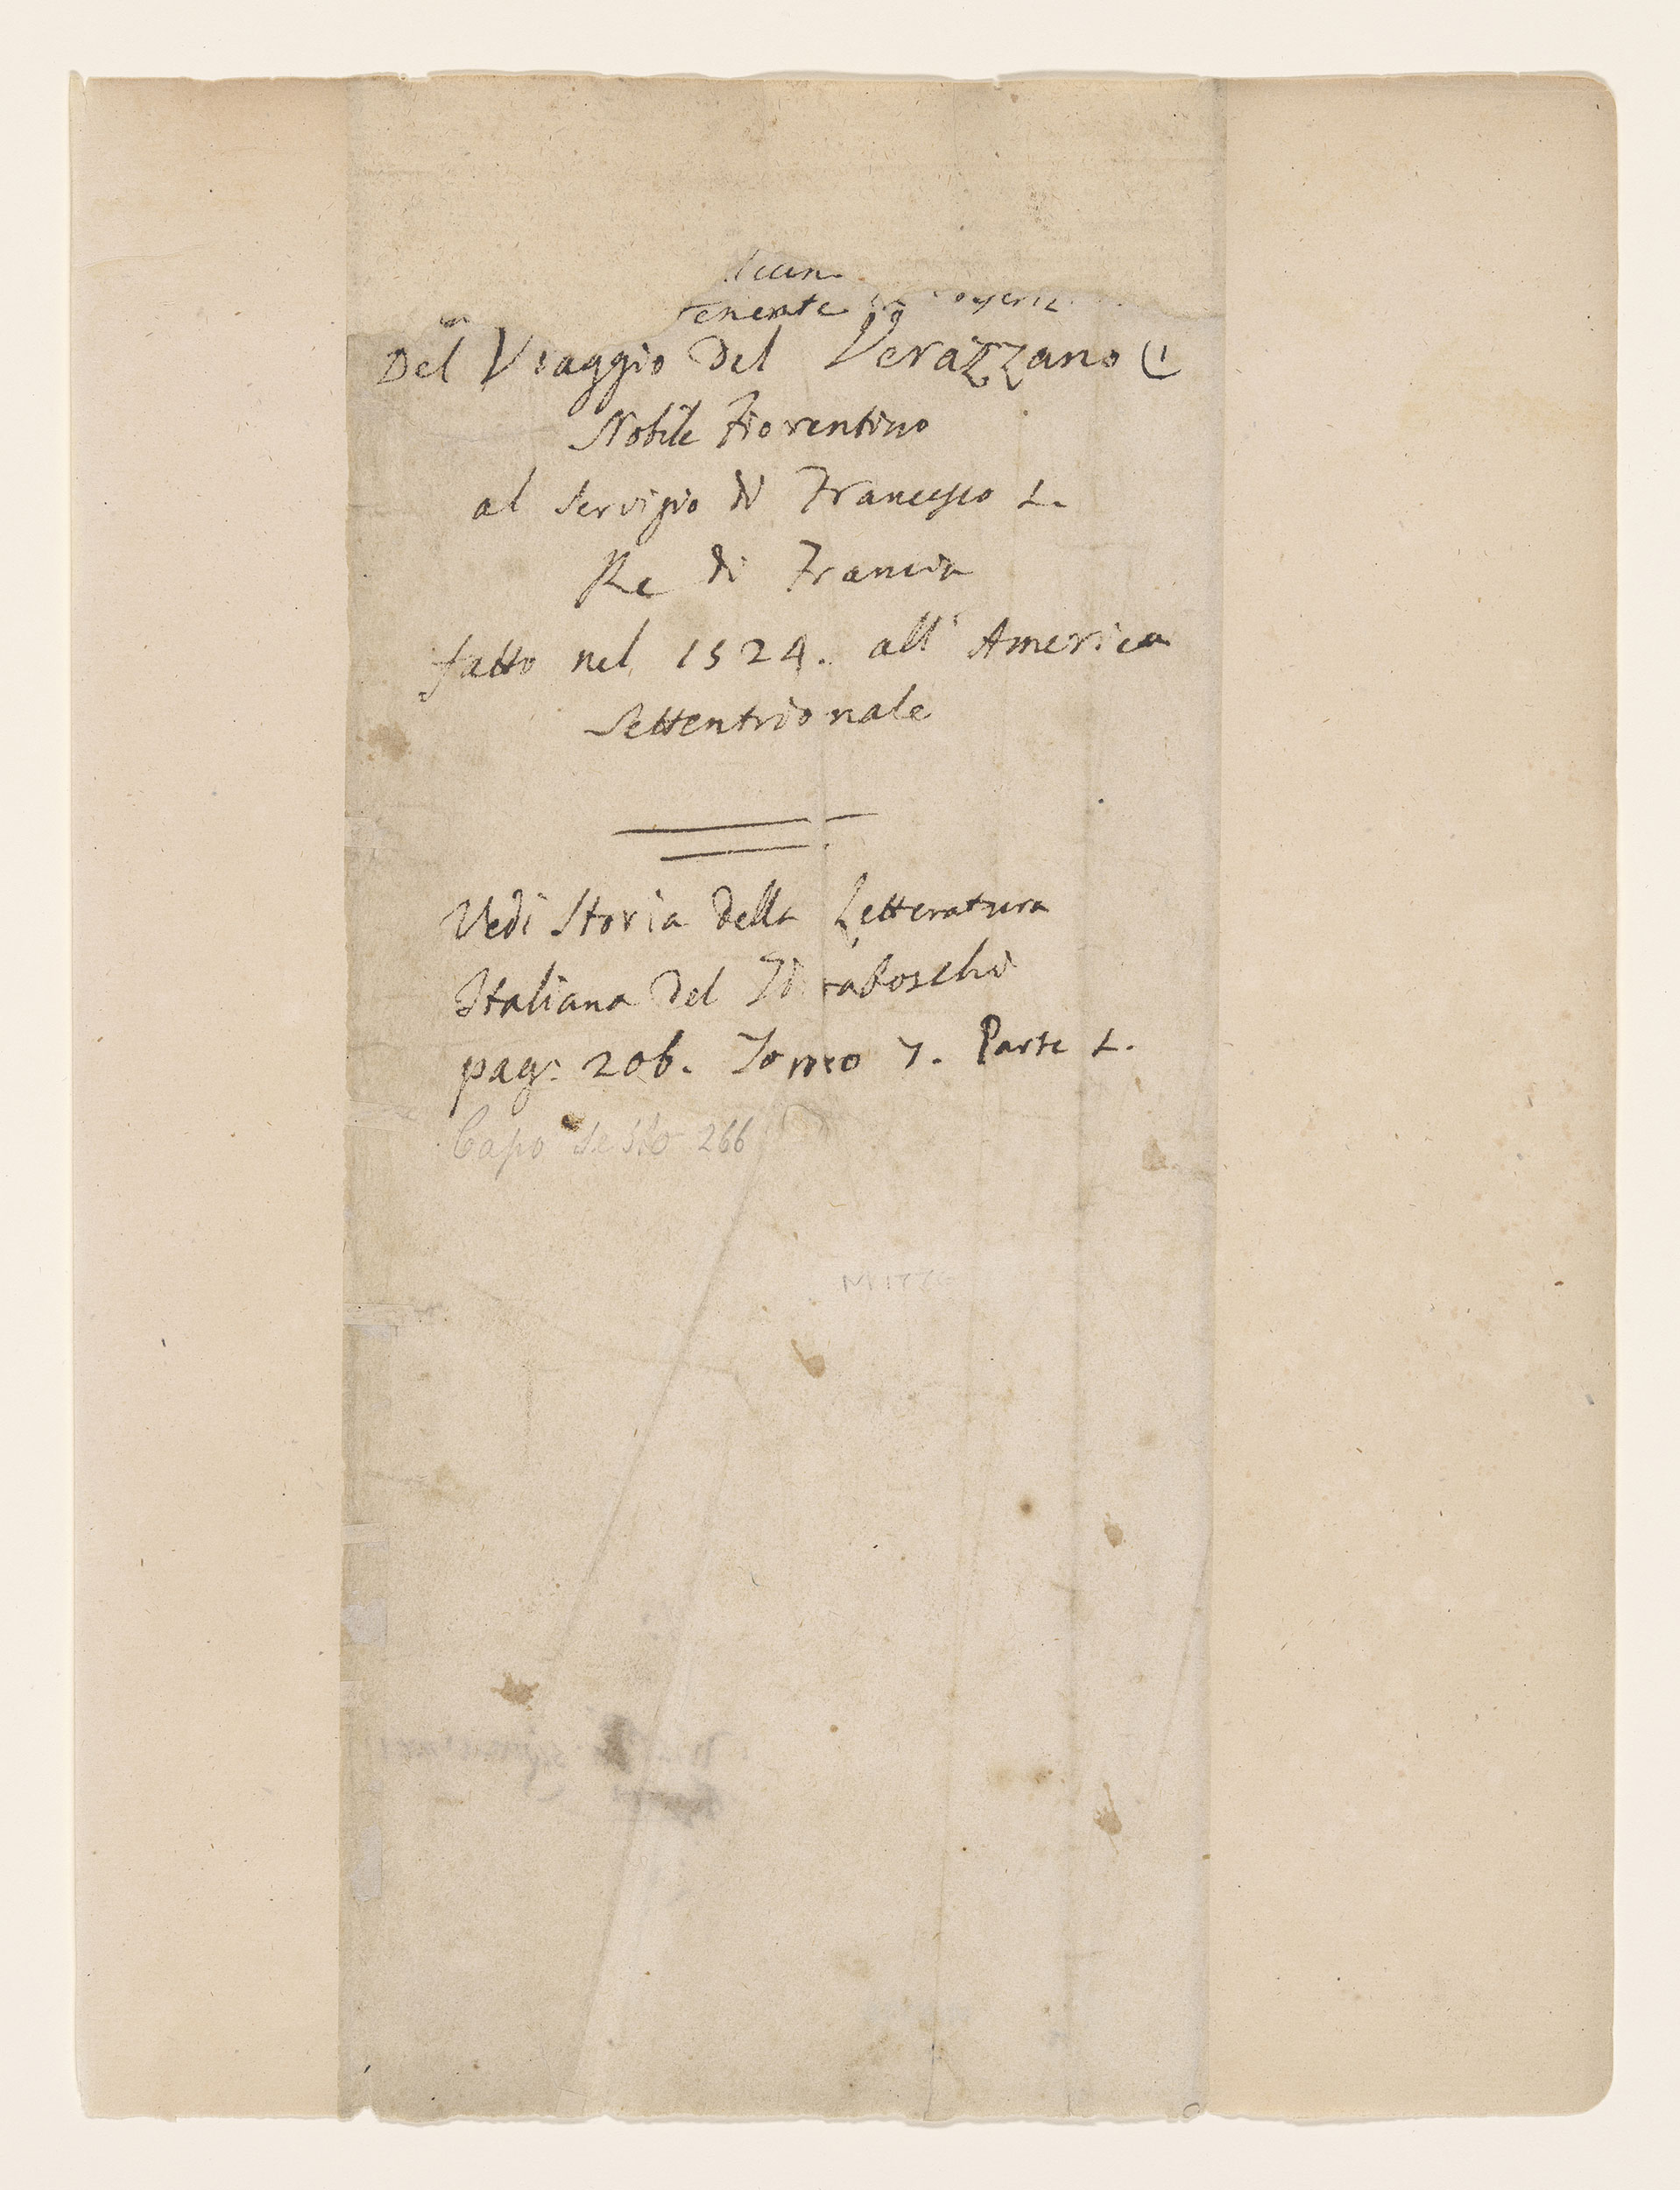 Del Viaggio del Verazzano (1
Nobile Fiorentino
al servigio di Francesco I.
Re di Francia
fatto nel 1524. all' America
Settentrionale
Vedi Storia della Letteratura
Italiana del Tiraboschi
pag: 206. Tomo 7. Parte I.
Capo Sesto 266